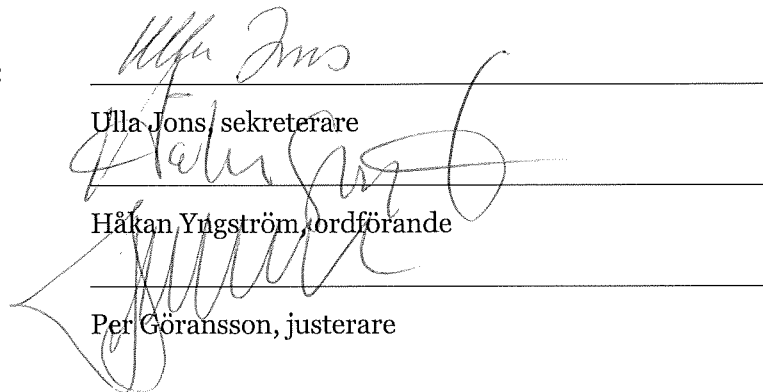 :
Ulla Jons
Ulla Jons, sekreterare
Håkan Yngström, ordförande
Per Göransson, justerare